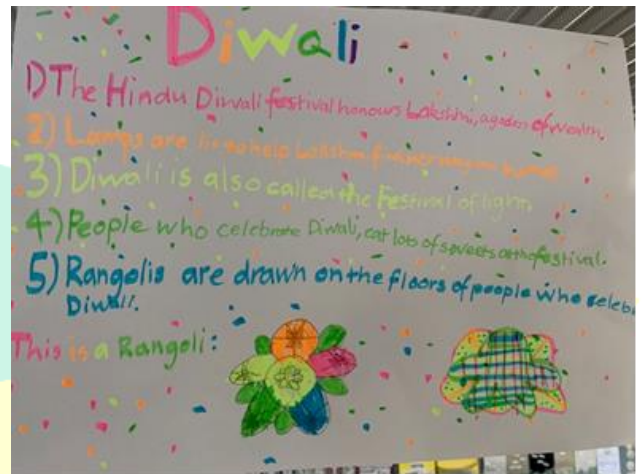 Diwali
1) The Hindu Diwali festival honours Lakshmi, a goddess of wealth.
2) Lamps are lit to help Lakshmi find her way
3) Diwali is also called the Festival of light.
4) People who celebrate Diwali, eat lots of sweets at the festival.
5) Rangolis are drawn on the floors of people who celeb
Diwali.
This is a Rangoli: